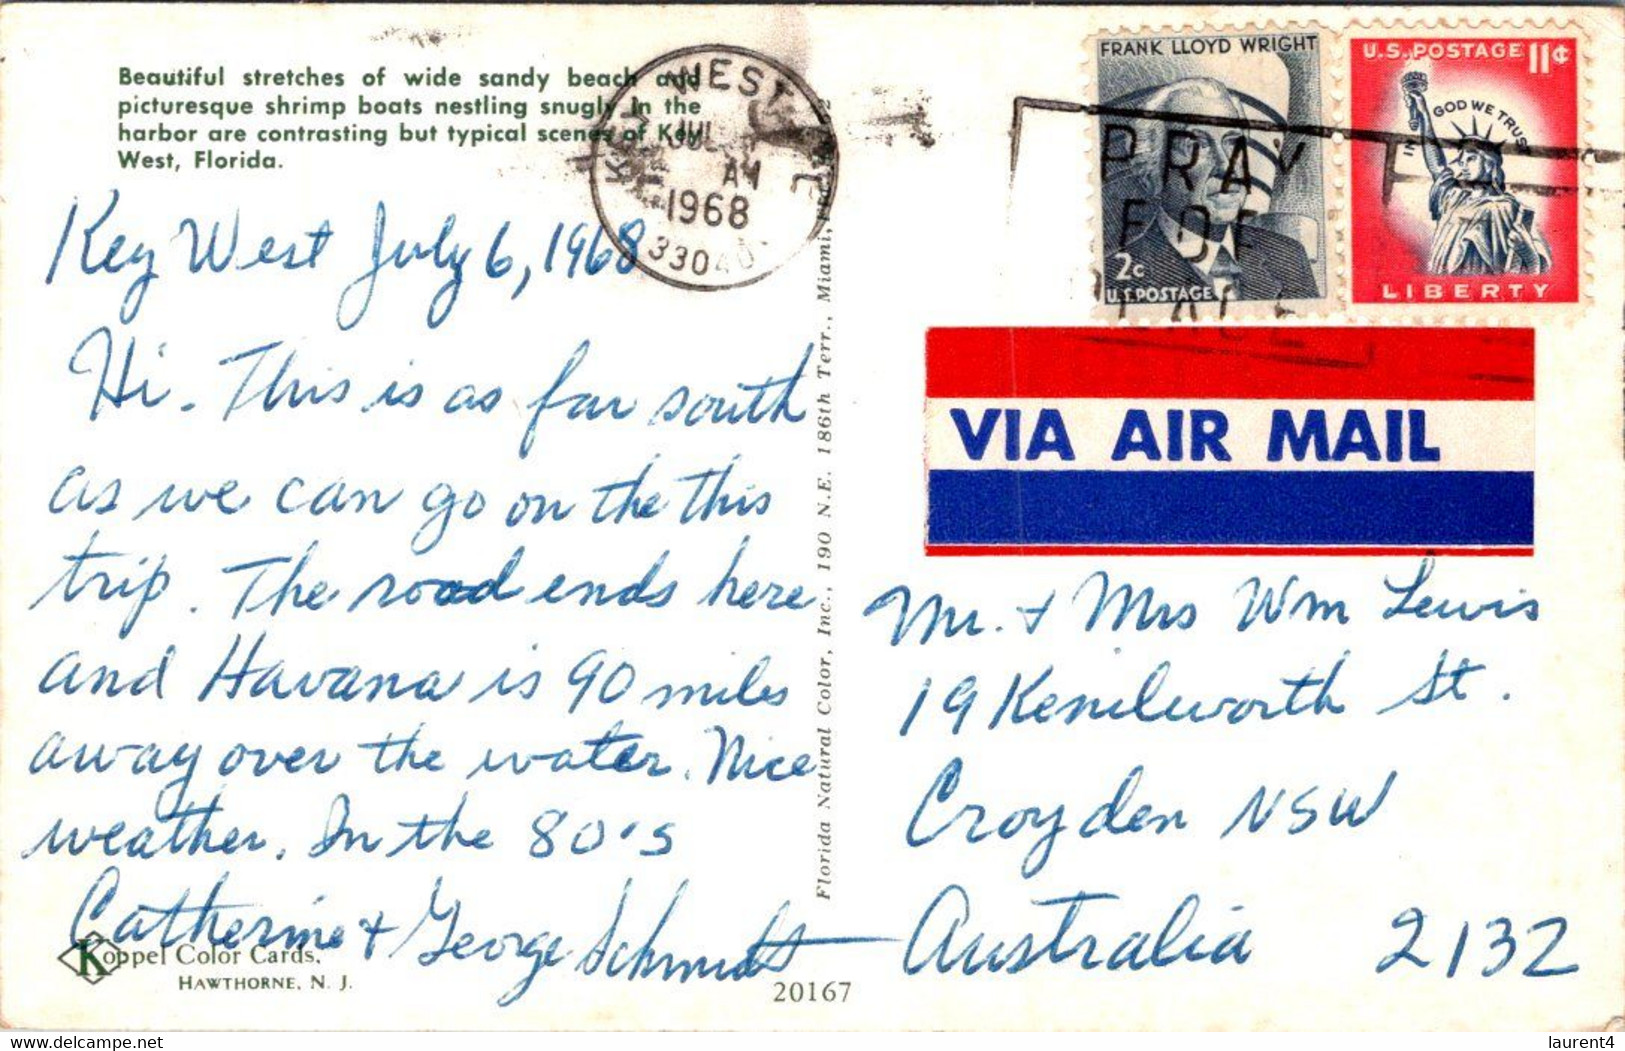 Beautiful stretches of wide sandy beach and
picturesque shrimp boats nestling snugly in the
harbor are contrasting but typical scenes of Key
West, Florida.
KEY WEST
JUL
AM
1968
33040
FRANK LLOYD WRIGHT
2c
U.S. POSTAGE
U.S. POSTAGE 11¢
IN GOD WE TRUST
LIBERTY
PRAY
FOR
VIA AIR MAIL
Key West July 6, 1968
Hi. This is as far south
as we can go on the this
trip. The road ends here
and Havana is 90 miles
away over the water. Nice
weather. In the 80's
Catherine & George Schmidt
Mr. & Mrs Wm Lewis
19 Kenilworth St.
Croyden NSW
Australia 2132
Florida Natural Color, Inc., 190 N.E. 186th Terr., Miami,
Koppel Color Cards,
HAWTHORNE, N. J.
20167
delcampe.net
laurent4